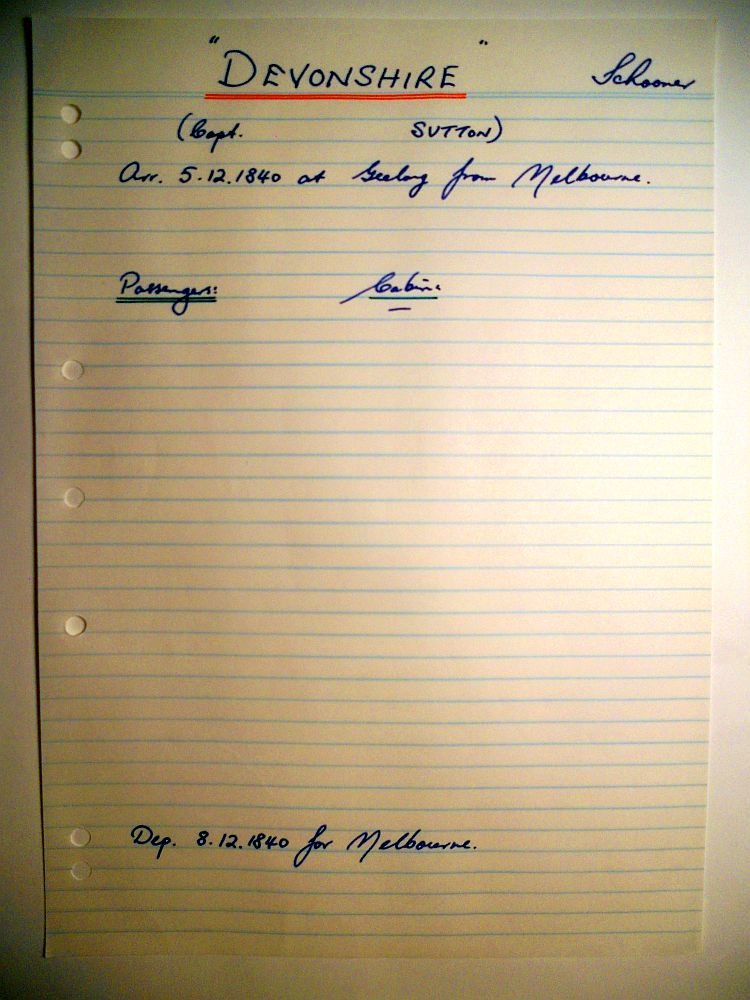 "DEVONSHIRE" Schooner
(Capt. SUTTON)
Arr. 5.12.1840 at Geelong from Melbourne.
Passengers: Cabin:
—
Dep. 8.12.1840 for Melbourne.